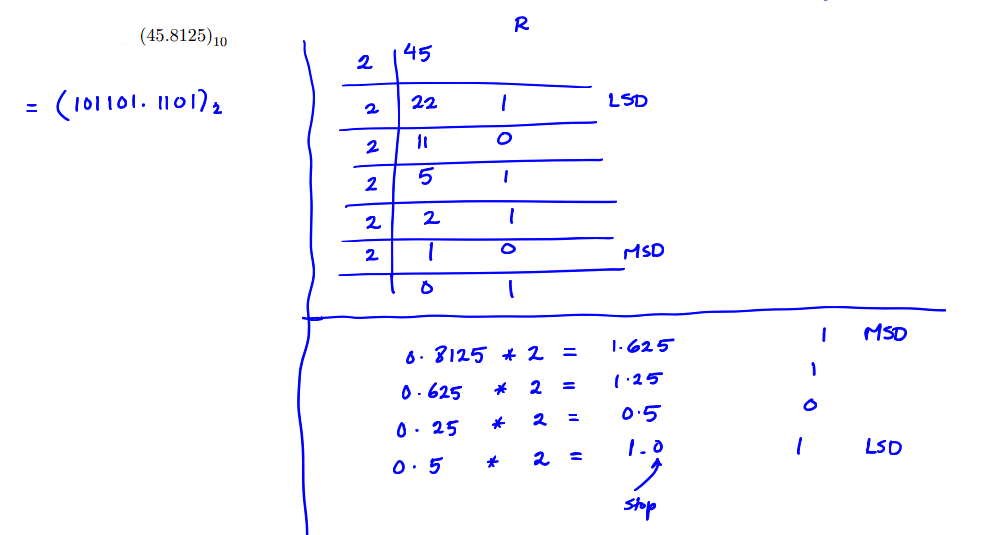 R
(45.8125)₁₀
= (101101.1101)₂
2 45
2 22 1 LSD
2 11 0
2 5 1
2 2 1
2 1 0 MSD
0 1
0.8125 * 2 = 1.625 1 MSD
0.625 * 2 = 1.25 1
0.25 * 2 = 0.5 0
0.5 * 2 = 1.0 1 LSD
Stop